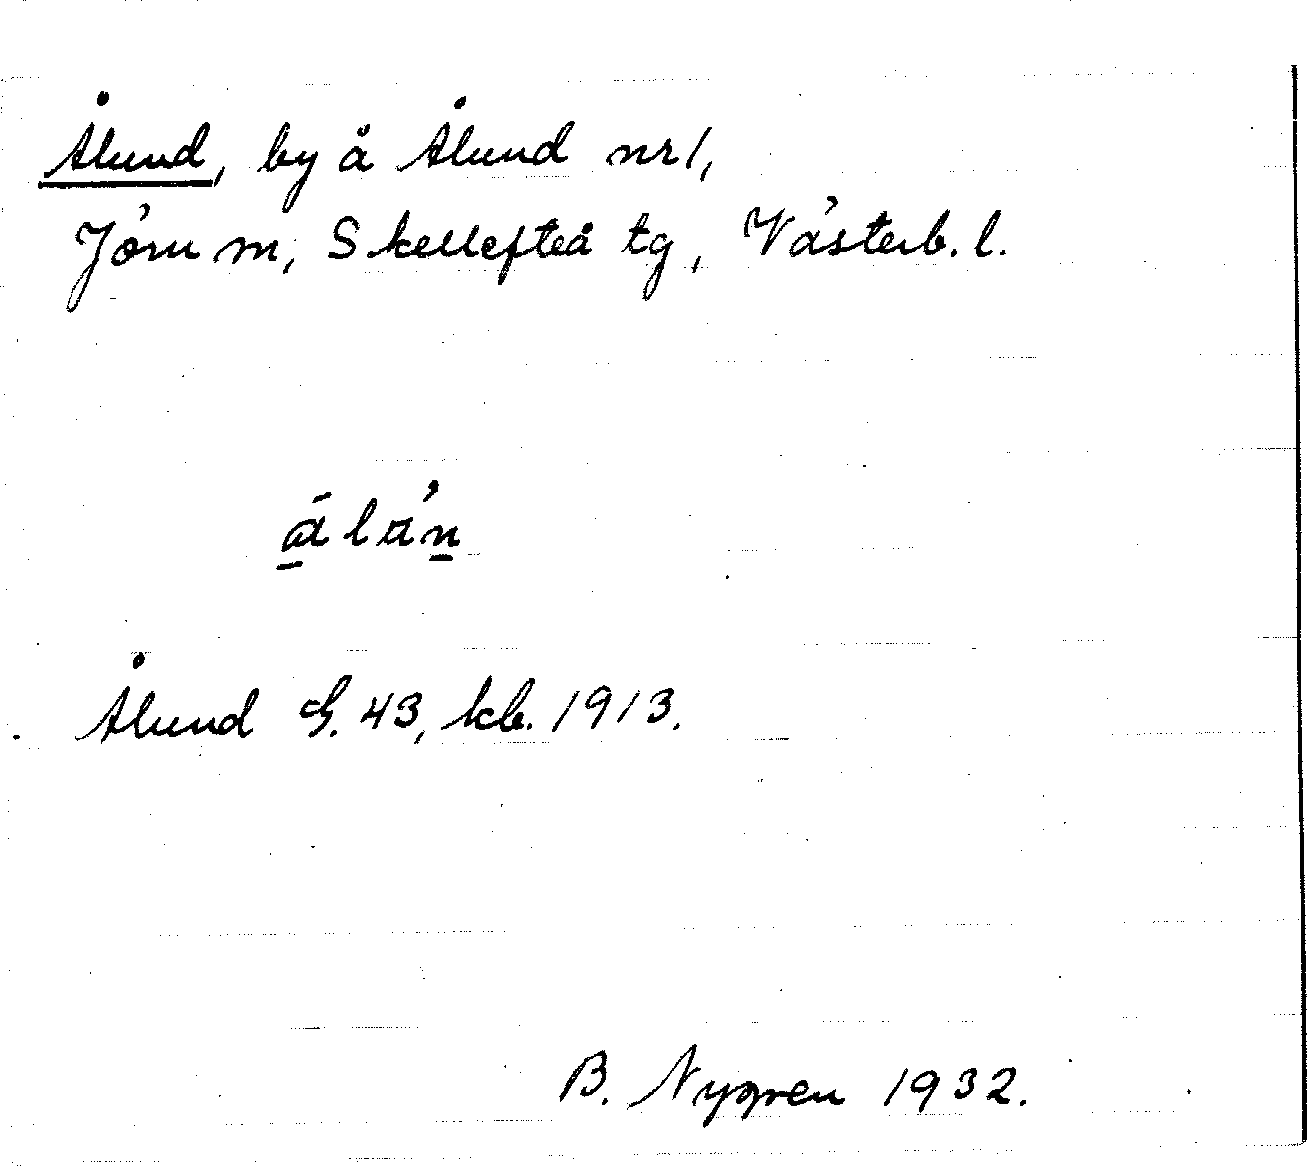 Ålund, by å Ålund nr 1,
Jörn m, Skellefteå tg, Västerb. l.
Ålund G. 43, kb. 1913.
B. Nygren 1932.